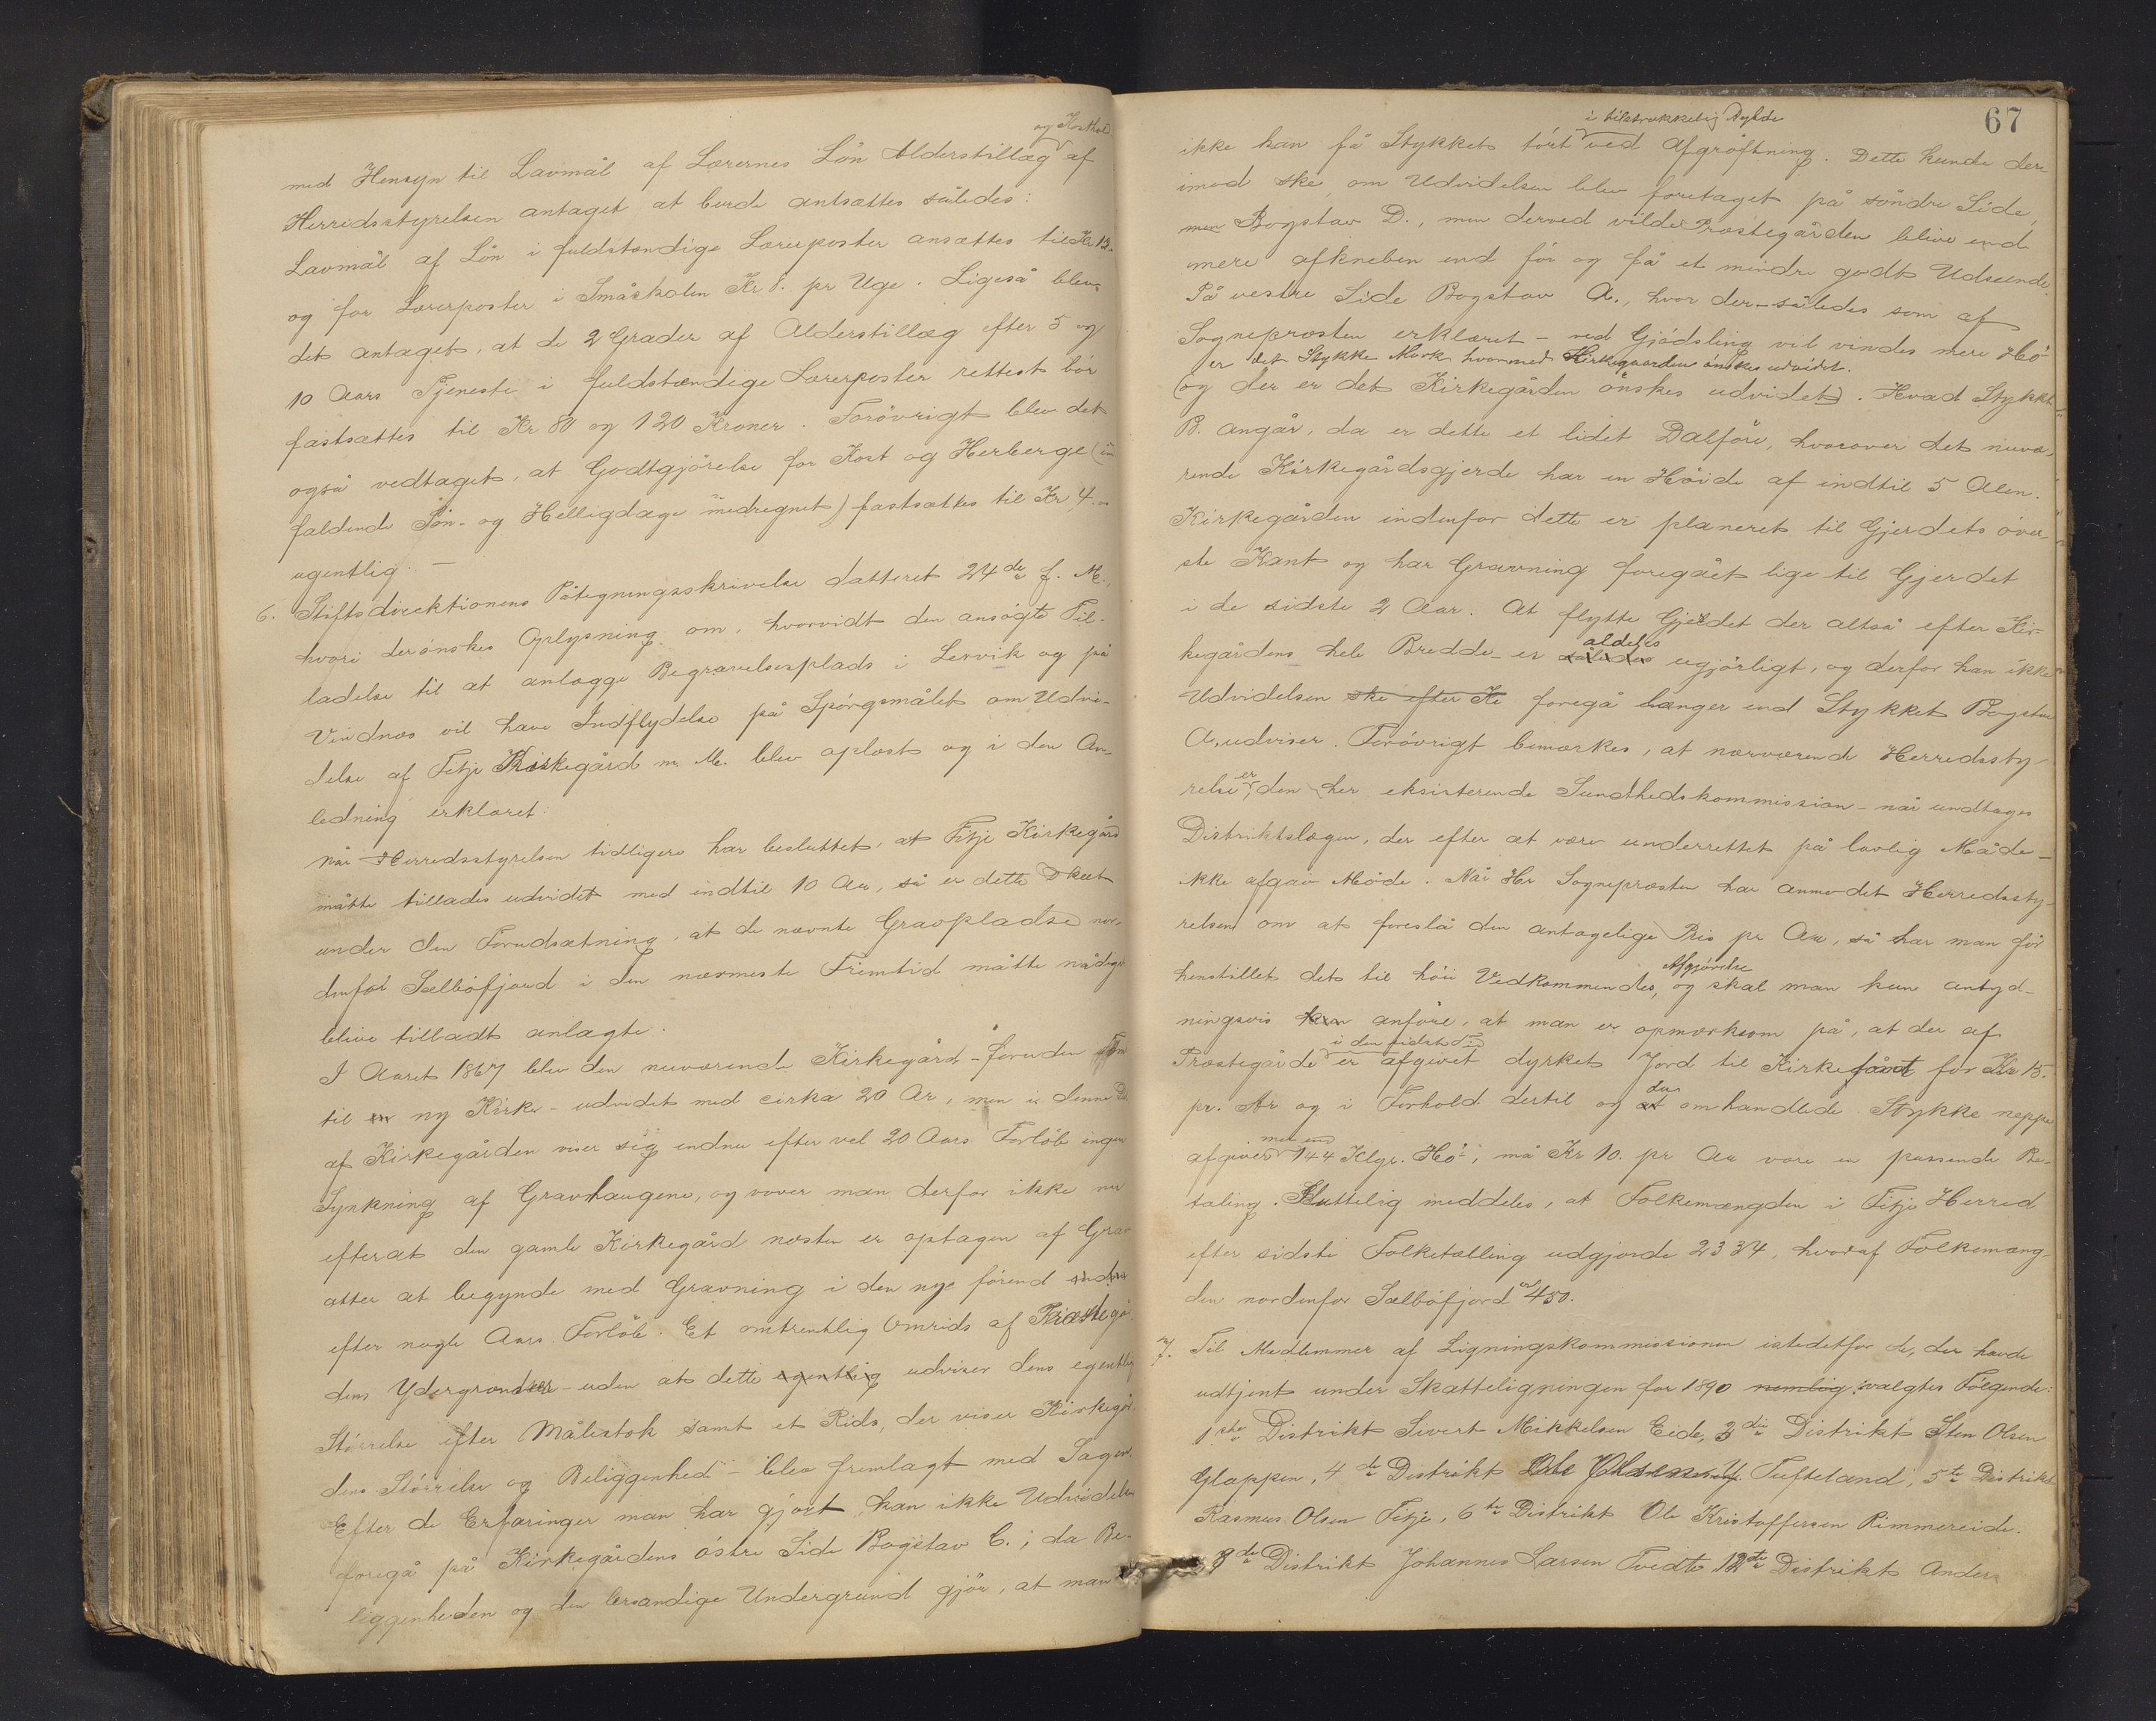 og Kosthold
med Hensyn til Lavmål af Lærernes Løn Alderstillæg af
Herredsstyrelsen antaget at burde ansættes således:
Lavmål af Løn i fuldstændige Lærerposter ansættes til Kr 12.
og for Lærerposter i Småskolen Kr 8. pr Uge. Ligeså blev
det antaget, at de 2 Grader af Alderstillæg efter 5 og
10 Aars Tjeneste i fuldstændige Lærerposter rettest bør
fastsættes til Kr 80 og 120 Kroner. Forøvrigt blev det
også vedtaget, at Godtgjørelse for Kost og Herberge (in
faldende Søn- og Helligdage medregnet) fastsættes til Kr 4.00
ugentlig. —
6. Stiftsdirektionens Påtegningsskrivelse datteret 24de f. M.,
hvori der ønskes Oplysning om, hvorvidt den ansøgte Til-
ladelse til at anlægge Begravelsesplads i Lervik og på
Vindnæs vil have Indflydelse på Spørgsmålet om Udvi-
delse af Fitje Kirkegård m. M. blev oplæst og i den An-
ledning erklæret:
når Herredsstyrelsen tidligere har besluttet, at Fitje Kirkegård
måtte tillades udvidet med indtil 10 Ar, så er dette skeet
under den Forudsætning, at de nævnte Gravpladse nor-
denfor Selbøfjord i den nærmeste Fremtid måtte nådigst
blive tilladt anlagte.
I Aaret 1867 blev den nuværende Kirkegård - foruden Tom
til en ny Kirke - udvidet med cirka 20 Ar, men i denne Del
af Kirkegården viser sig endnu efter vel 20 Aars Forløb ingen
Synkning af Gravhaugene, og vover man derfor ikke nu
efterat den gamle Kirkegård næsten er optagen af Grav
atter at begynde med Gravning i den nye førend endnu
efter nogle Aars Forløb. Et omtrentlig Omrids af Præstegår-
dens Ydergrændser - uden at dette egentlig udviser dens egentlig
Størrelse efter Målestok samt et Rids, der viser Kirkegår-
dens Størrelse og Beliggenhed - blev fremlagt med Sagen.
Efter de Erfaringer man har gjort, kan ikke Udvidelsen
foregå på Kirkegårdens østre Side Bogstav C.; da Be-
liggenheden og den løssandige Undergrund gjør, at man
67
i tilstrækkelig Dybde
ikke kan få Stykket tørt ved Afgrøftning. Dette kunde der-
imod ske, om Udvidelsen blev foretaget på søndre Side,
men Bogstav D., men derved vilde Præstegården blive end
mere afkneben end før og få et mindre godt Udseende.
På vestre Side Bogstav A., hvor der - således som af
Sognepræsten erklæret - ved Gjødsling vil vindes mere Hø
er det Stykke Mark hvormed Kirkegaarden ønskes udvidet.
(og der er det Kirkegården ønskes udvidet). Hvad Stykket
B. angår, da er dette et lidet Dalføre, hvorover det nuvæ-
rende Kirkegårdsgjerde har en Høide af indtil 5 Alen.
Kirkegården indenfor dette er planeret til Gjerdets øver-
ste Kant og har Gravning foregået lige til Gjerdet
i de sidste 2 Aar. At flytte Gjerdet der altså efter Kir-
aldeles
kegårdens hele Bredde - er således ugjørligt, og derfor kan ikke
Udvidelsen ske efter Ki foregå længer end Stykket Bogstav
A. udviser. Forøvrigt bemærkes, at nærværende Herredssty-
relse er, den her eksisterende Sundhedskommission - når undtages
Distriktslægen, der efter at være underrettet på lovlig Måde -
ikke afgav Møde. Når Hr Sognepræsten har anmodet Herredssty-
relsen om at foreslå den antagelige Pris pr Ar, så har man før
Afgjørelse
henstillet det til høie Vedkommendes, og skal man kun antyd-
ningsvis kun anføre, at man er opmærksom på, at der af
i den sidste Tid
Præstegårde er afgivet dyrket Jord til Kirketomt for Kr 15.
det
pr. Ar og i Forhold dertil og at omhandlede Stykke neppe
mer end
afgiver 144 Klgr. Hø, må Kr 10. pr Ar være en passende Be-
taling. Sluttelig meddeles, at Folkemængden i Fitje Herred
efter sidste Folketælling udgjorde 2334, hvoraf Folkemæng-
den nordenfor Selbøfjord er 450.
7. Til Medlemmer af Ligningskommissionen istedetfor de, der havde
udtjent under Skatteligningen for 1890 nemlig: valgtes Følgende:
1ste Distrikt Sivert Mikkelsen Eide, 3die Distrikt Sten Olsen
Glappen, 4de Distrikt Ole Tufteland, 5te Distrikt
Rasmus Olsen Fitje, 6te Distrikt Ole Kristoffersen Rimmereide.
8de Distrikt Johannes Larsen Tvedte 12te Distrikt Anders